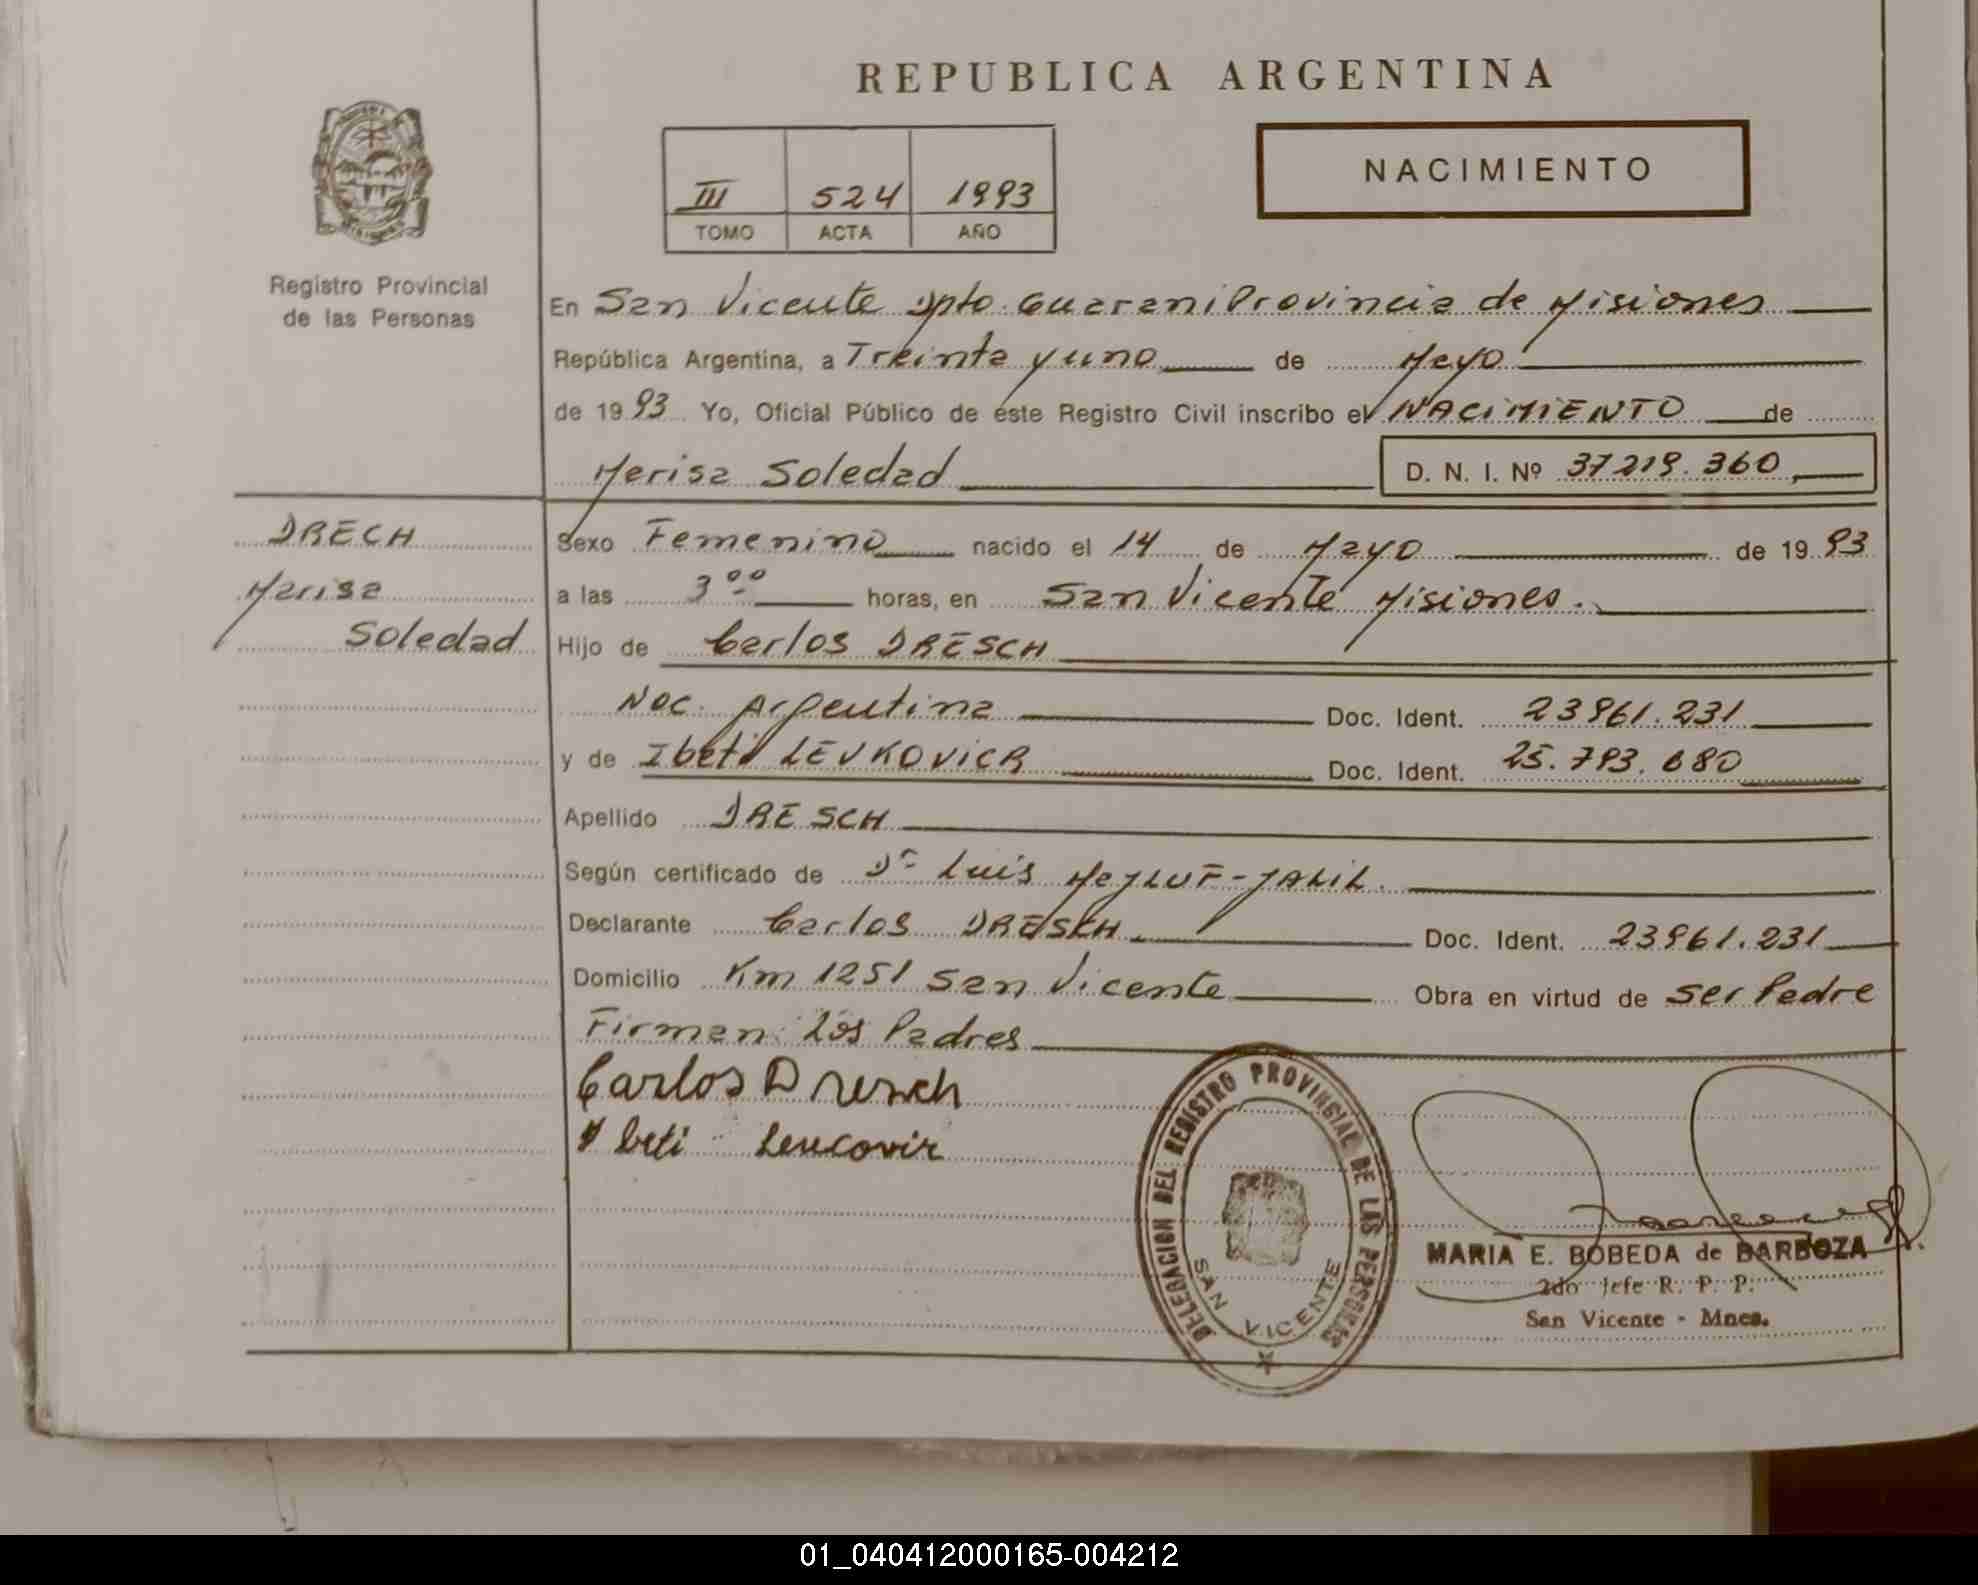 REPUBLICA ARGENTINA
III 524 1993
TOMO ACTA AÑO
NACIMIENTO
Registro Provincial
de las Personas
En San Vicente Dpto. Guarani Provincia de Misiones
República Argentina, a Treinta y uno de Mayo
de 1993 Yo, Oficial Público de éste Registro Civil inscribo el NACIMIENTO de
Marisa Soledad D. N. I. Nº 37219.360
DRECH
Marisa
Soledad
Sexo Femenino nacido el 14 de Mayo de 1993
a las 3⁰⁰ horas, en San Vicente Misiones.
Hijo de Carlos DRESCH
Nac. Argentina Doc. Ident. 23961.231
y de Ibeti LEVKOVICR Doc. Ident. 25.793.680
Apellido DRESCH
Según certificado de Dr Luis JALIL.
Declarante Carlos DRESCH Doc. Ident. 23961.231
Domicilio Km 1251 San Vicente Obra en virtud de ser Padre
Firman: Los Padres
Carlos Dresch
Ybeti Leucovir
DELEGACION DEL REGISTRO PROVINCIAL DE LAS PERSONAS
SAN VICENTE
MARIA E. BOBEDA de BARBOZA
2do Jefe R. P. P.
San Vicente - Mnes.
01_040412000165-004212